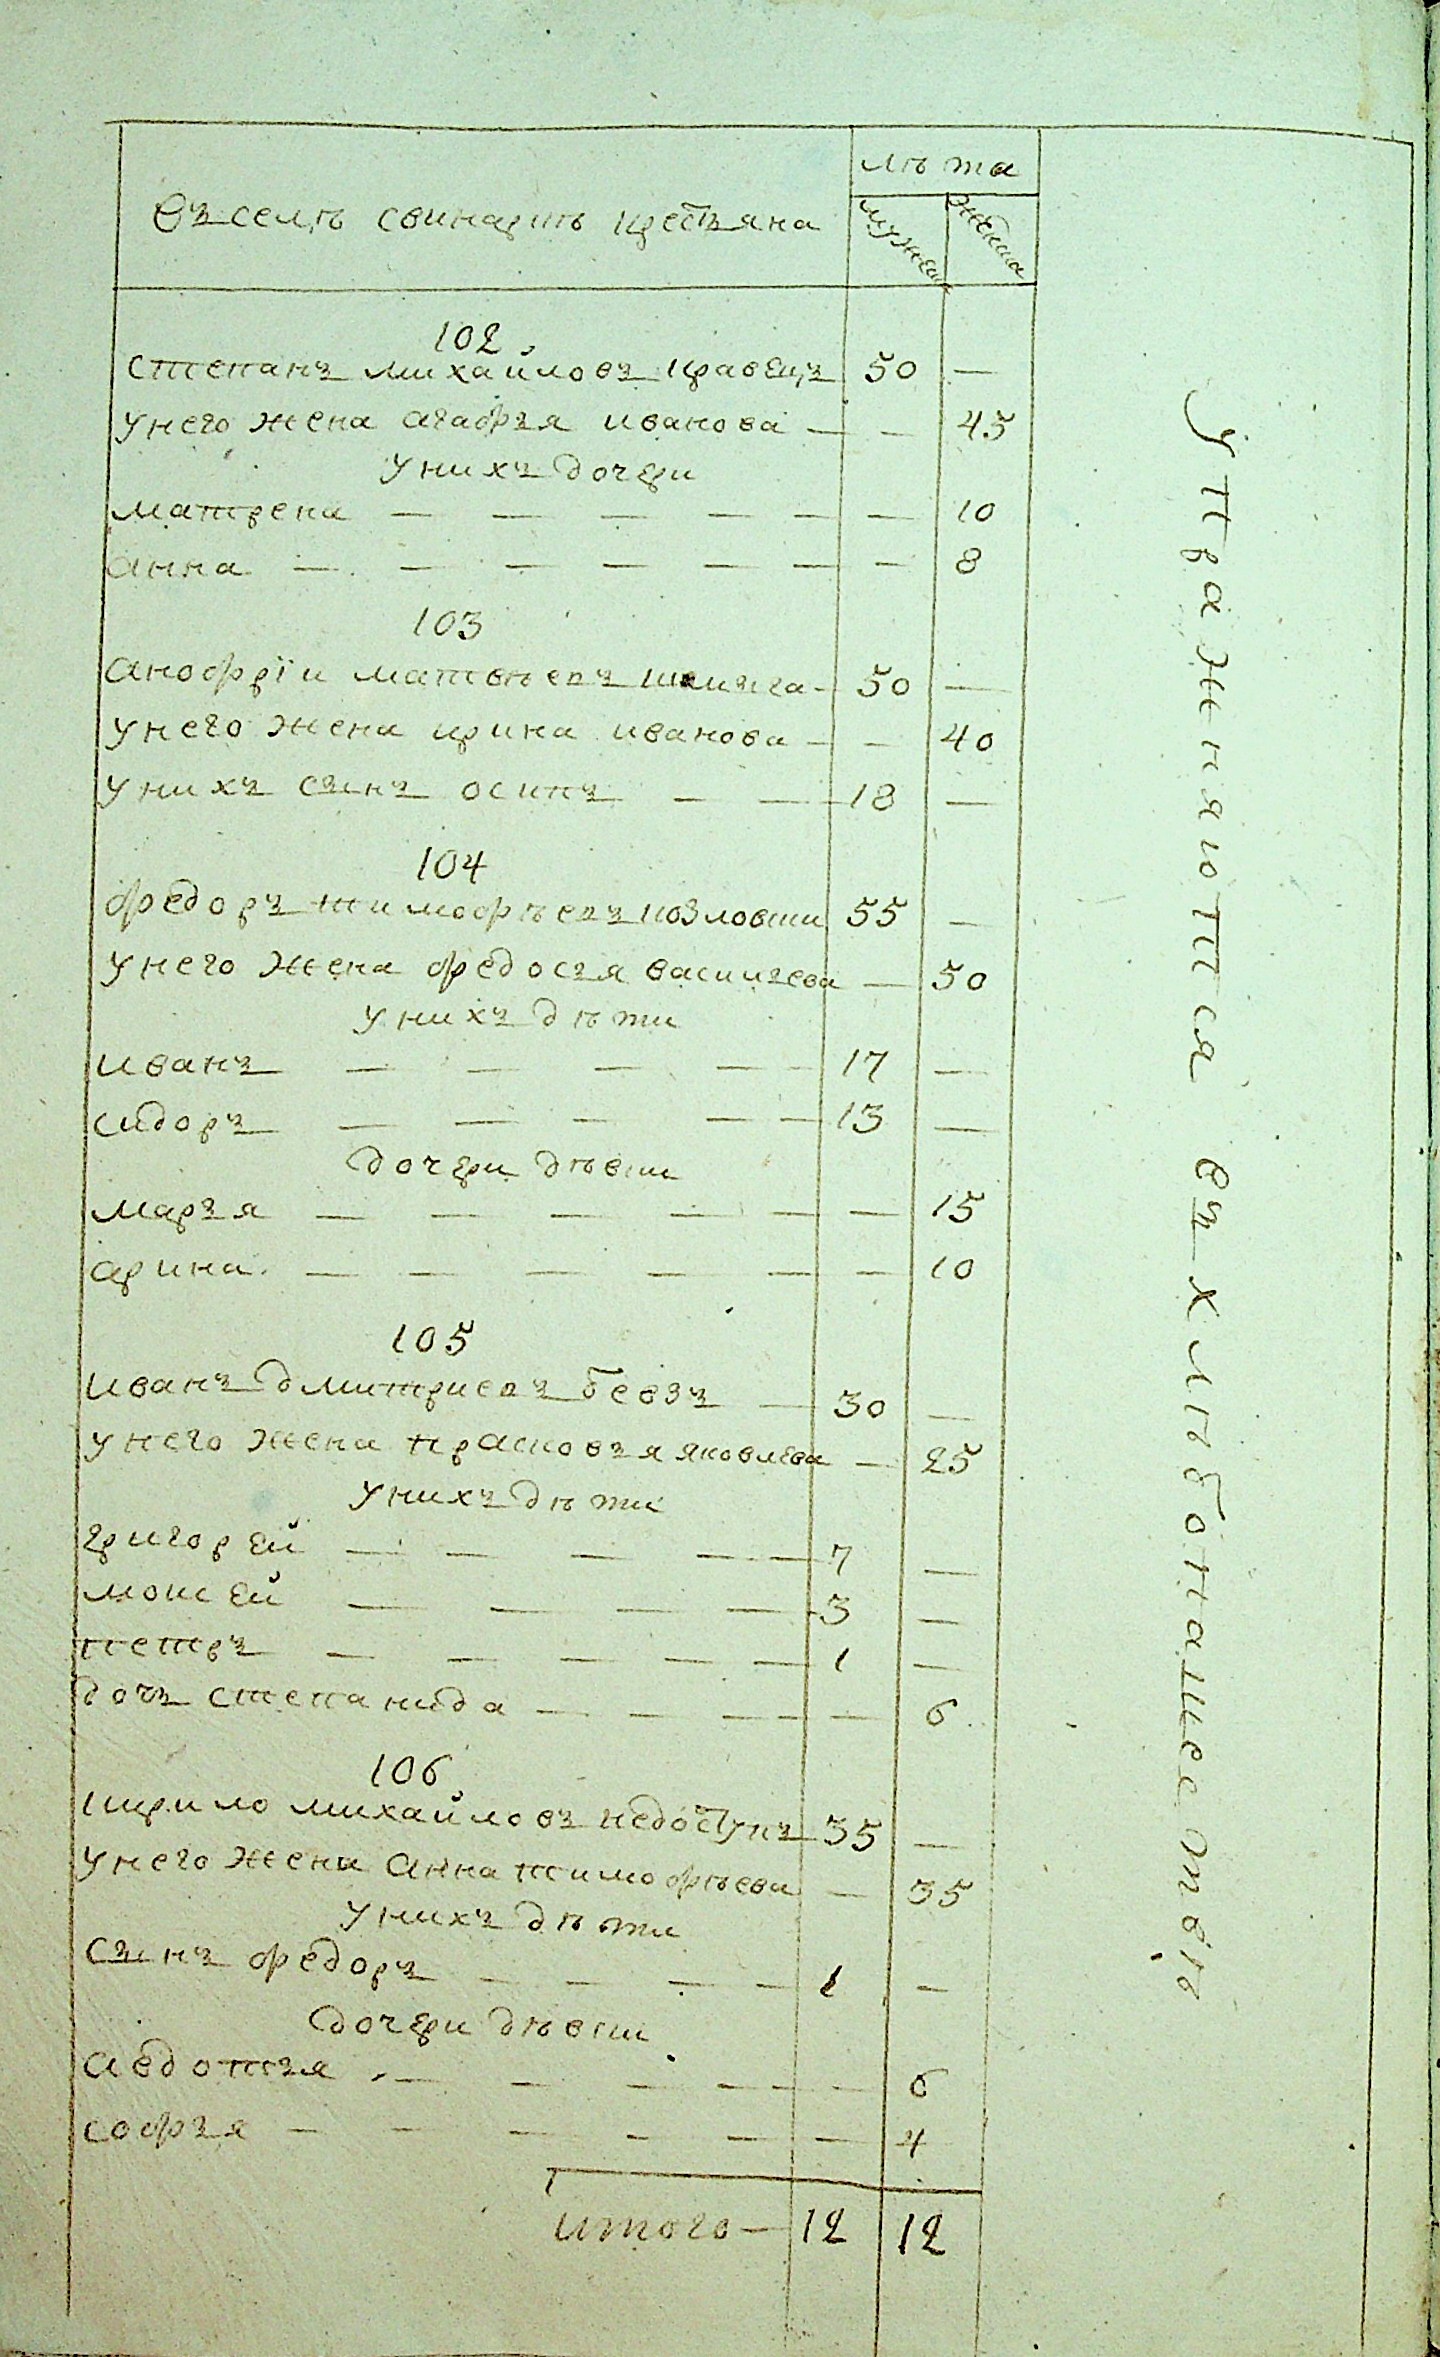 лѣта
въ селѣ свинарѣ крестьяна
мужеск
женска
102
степанъ михайловъ кравецъ 50 —
у него жена агафья иванова — — 45
у нихъ дочери
матрена — — — — — — 10
анна — — — — — — — 8
103
анофрїи матвѣевъ 50 —
у него жена ирина иванова — — 40
у нихъ сынъ осипъ — — 18 —
104
федоръ тимофѣевъ козловски 55 —
у него жена федосья васильева — 50
у нихъ дѣти
иванъ — — — — — 17 —
сидоръ — — — — — 13 —
дочери дѣвки
марья — — — — — — 15
арина — — — — — — 10
105
иванъ дмитриевъ бевзъ — 30 —
у него жена прасковья яковлева — 25
у нихъ дѣти
григорей — — — — — 7 —
моисей — — — — 3 —
петръ — — — — — 1 —
дочь степанида — — — — — 6
106
кирило михайловъ недоступъ 35 —
у него жена анна тимофѣева — 35
у нихъ дѣти
сынъ федоръ — — — — 1 —
дочери дѣвки
авдотья — — — — — — 6
софья — — — — — — 4
итого — 12 12
упражняются въ хлѣбопашествѣ